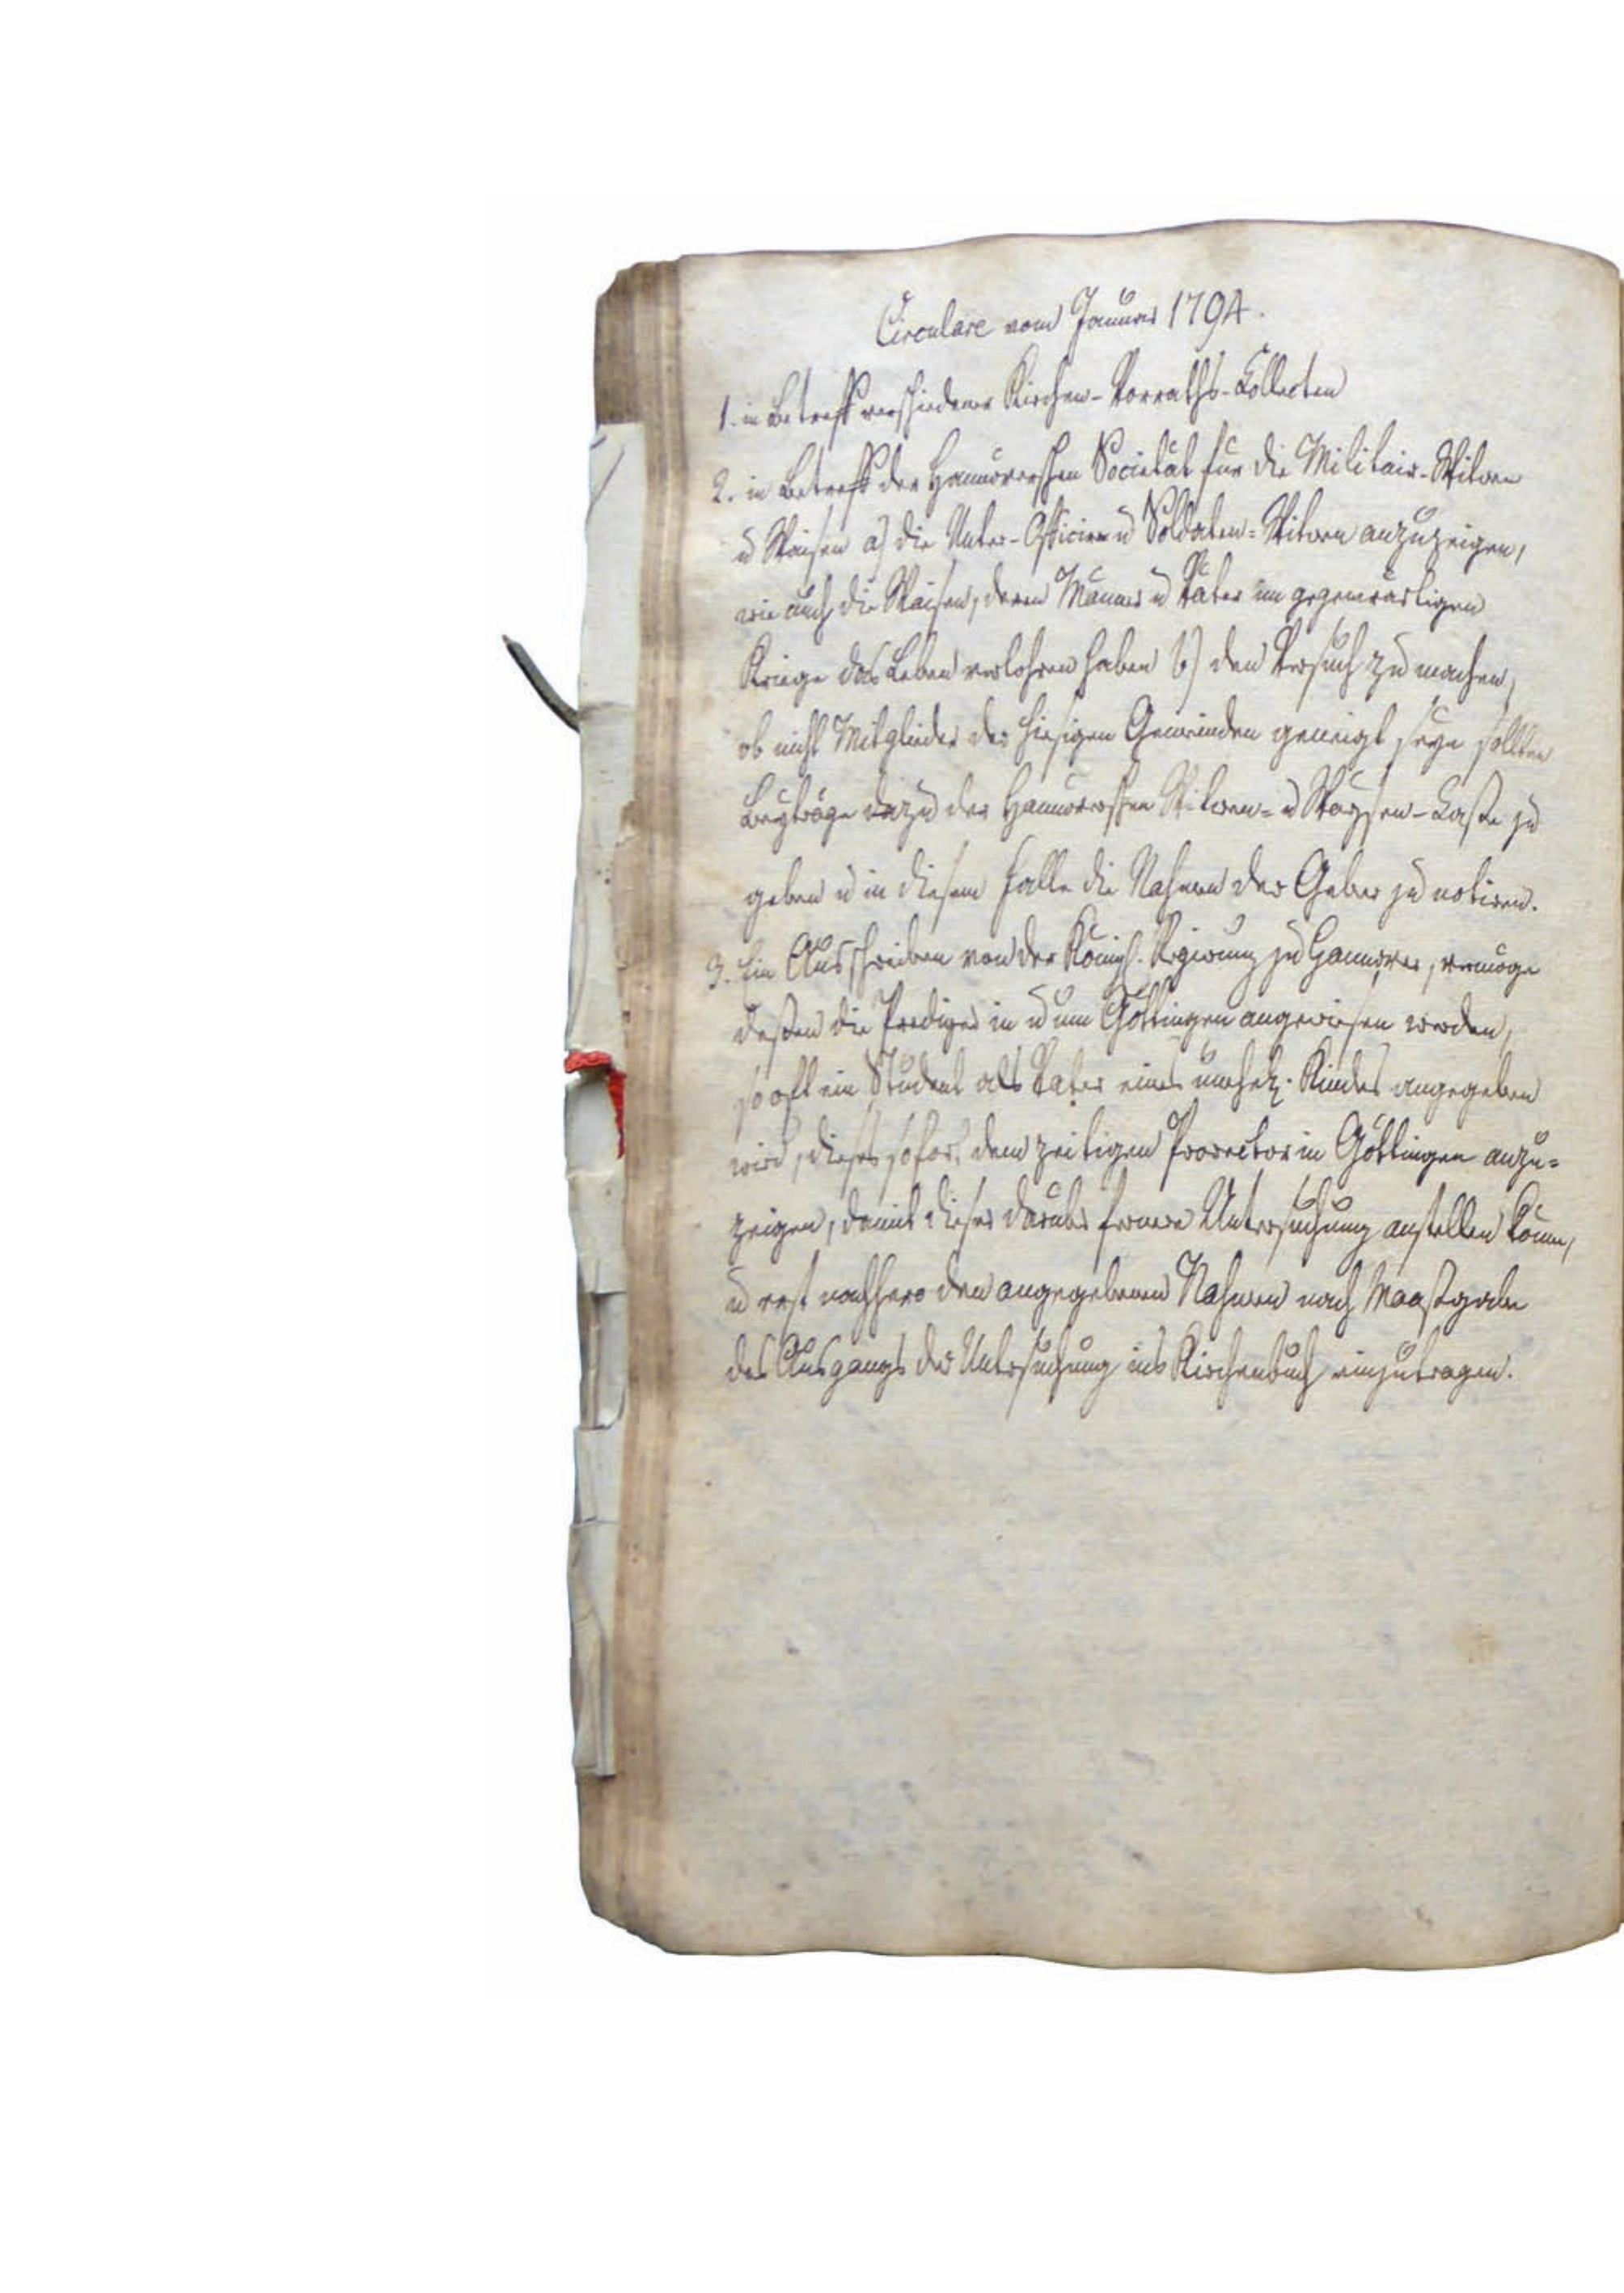 Circulare vom Januar 1794.
1. in Betreff verschiedener Kirchen-Vorraths-Collecten
2. in Betreff der Hannöverschen Societät für die Militair-Witwen
u Waisen a) die Unter-Officier u Soldaten-Witwen anzuzeigen,
wie auch die Waisen, deren Männer u Väter im gegenwärtigen
Kriege das Leben verlohren haben b) den Versuch zu machen,
ob nicht Mitglieder der hiesigen Gemeinden geneigt seyn sollten
Beyträge dazu der Hannöverschen Witwen- u Waysen-Casse zu
geben u in diesem Falle die Nahmen der Geber zu notiren.
3. Ein Ausschreiben von der Königl. Regierung zu Hannover, vermöge
deßen die Prediger in u um Göttingen angewiesen werden,
so oft ein Student als Vater eines unehel. Kindes angegeben
wird, dieses sofort dem zeitigen Prorector in Göttingen anzu-
zeigen, damit dieser darüber fernere Untersuchung anstellen könne,
u erst nachhero den angegebenen Nahmen nach Maaßgabe
des Ausgangs der Untersuchung ins Kirchenbuch einzutragen.